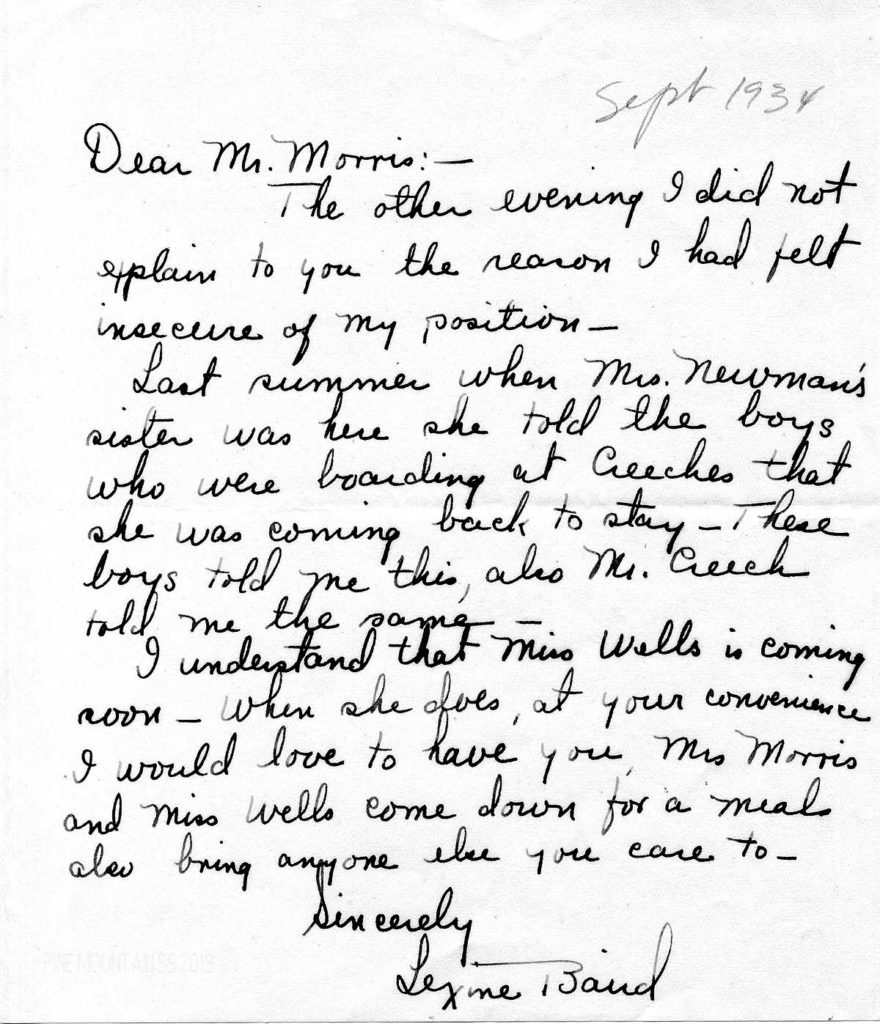 Sept 1934
Dear Mr. Morris:—
The other evening I did not
explain to you the reason I had felt
insecure of my position—
Last summer when Mrs. Newman's
sister was here she told the boys
who were boarding at Creeches that
she was coming back to stay—These
boys told me this, also Mr. Creech
told me the same—
I understand that Miss Wells is coming
soon—When she does, at your convenience
I would love to have you, Mrs Morris
and Miss Wells come down for a meal
also bring anyone else you care to—
Sincerely
Lexine Baird
PINE MOUNTAIN SS 2019